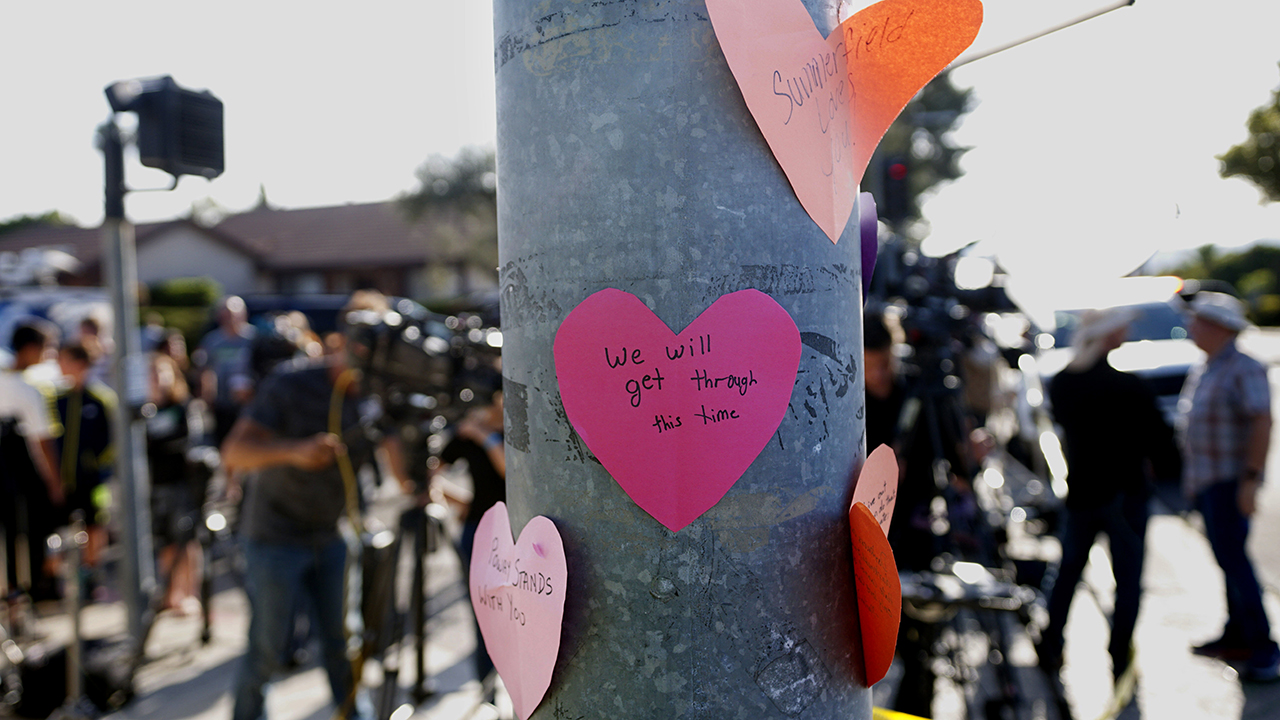 Summerfield
Loves
you!
We will
get through
this time
Poway STANDS
WITH YOU